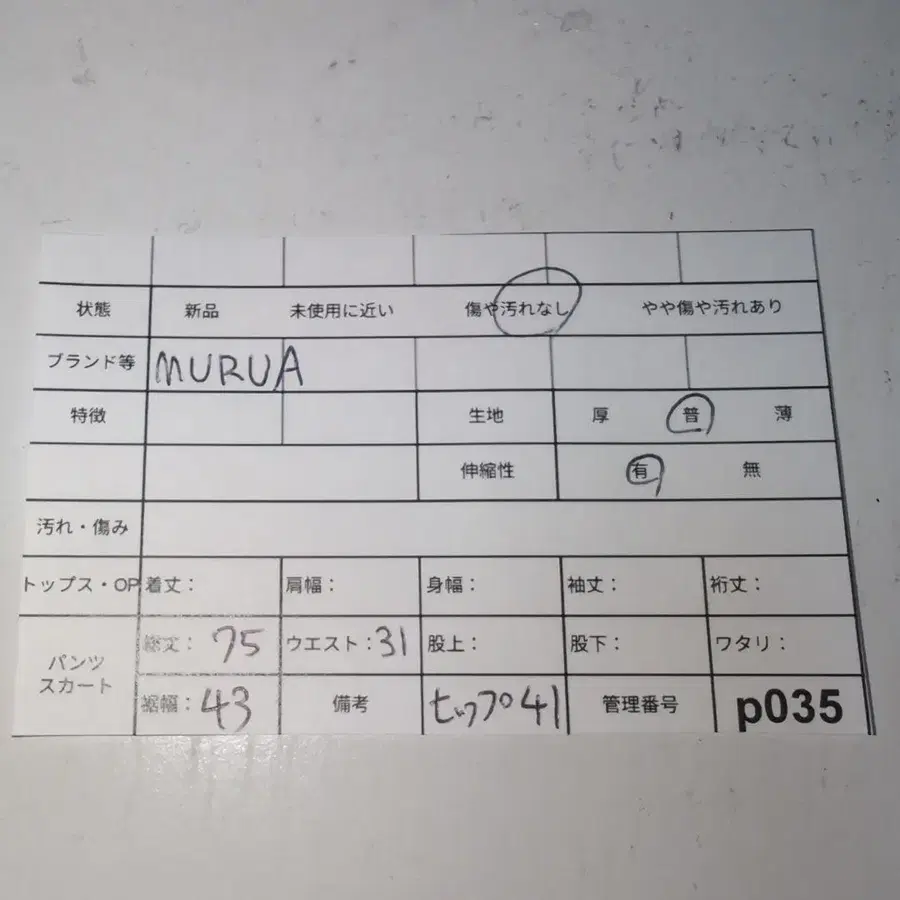 状態 新品 未使用に近い 傷や汚れなし やや傷や汚れあり
ブランド等 MURUA
特徴 生地 厚 普 薄
伸縮性 有 無
汚れ・傷み
トップス・OP 着丈： 肩幅： 身幅： 袖丈： 裄丈：
パンツ スカート 総丈：75 ウエスト：31 股上： 股下： ワタリ：
裾幅：43 備考 ヒップ41 管理番号 p035